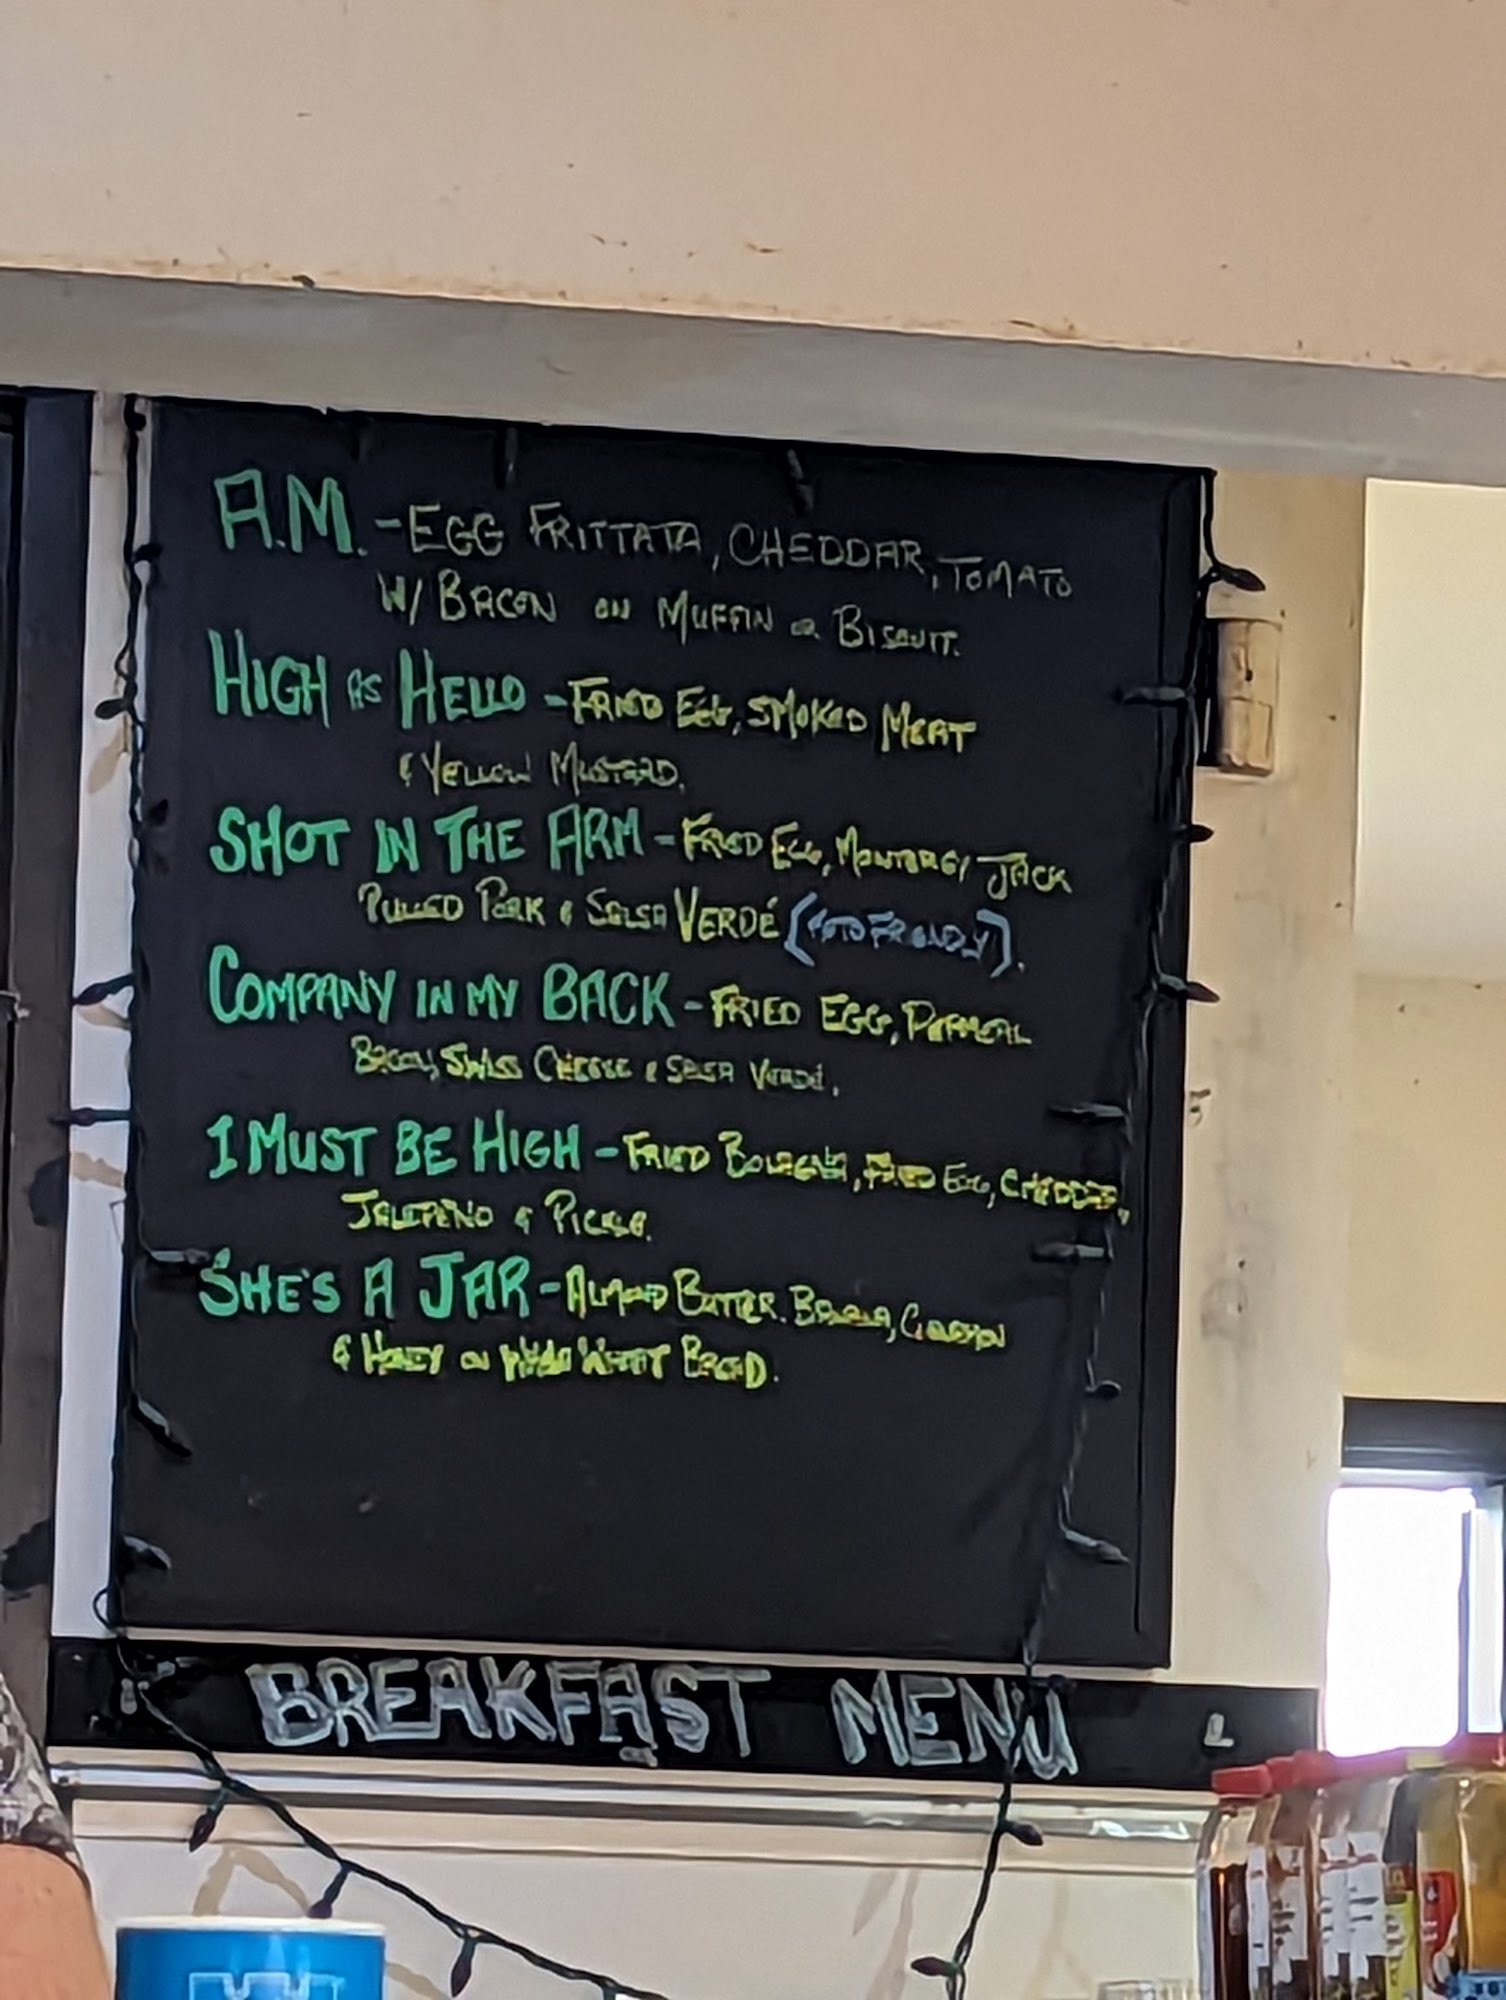 A.M. - EGG FRITTATA, CHEDDAR, TOMATO
W/ BACON ON MUFFIN OR BISCUIT.
HIGH AS HELLO - FRIED EGG, SMOKED MEAT
& YELLOW MUSTARD.
SHOT IN THE ARM - FRIED EGG, MONTEREY JACK
PULLED PORK & SALSA VERDÉ (KETO FRIENDLY).
COMPANY IN MY BACK - FRIED EGG, PEAMEAL
BACON, SWISS CHEESE & SALSA VERDÉ.
I MUST BE HIGH - FRIED BOLOGNA, FRIED EGG, CHEDDAR,
JALEPENO & PICKLE.
SHE'S A JAR - ALMOND BUTTER. BANANA, CINNAMON
& HONEY ON WHOLE WHEAT BREAD.
BREAKFAST MENU